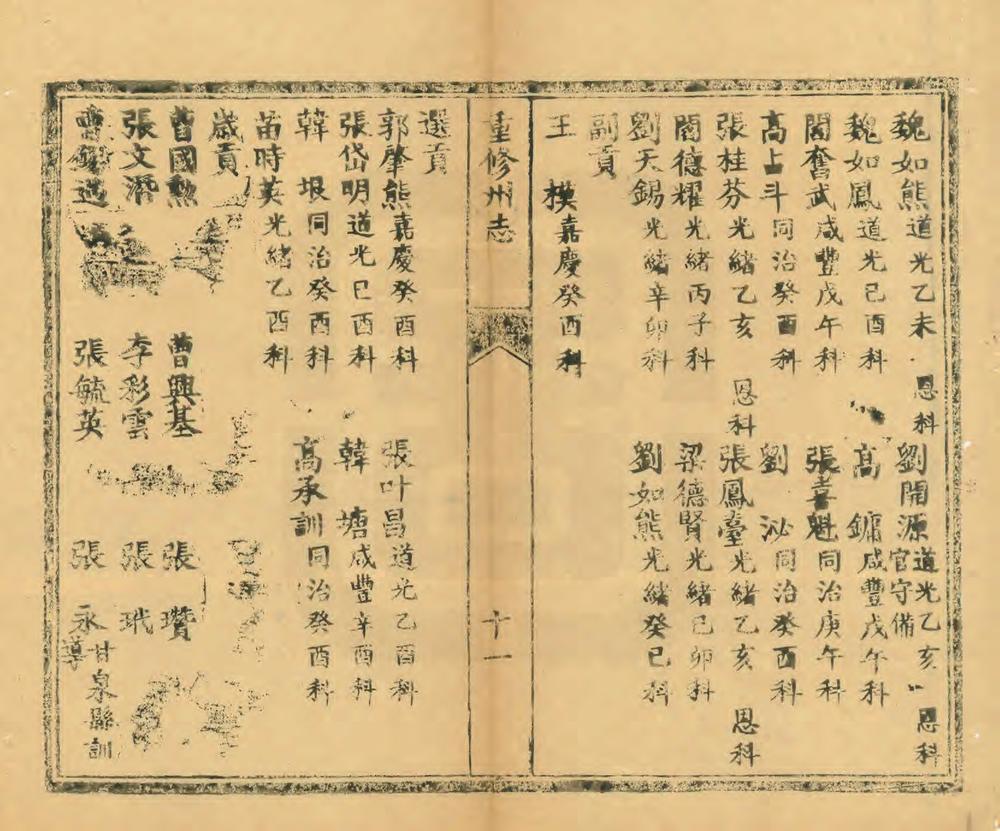 魏如熊道光乙未恩科 劉開源道光乙亥恩科官守備
魏如鳳道光己酉科 高 鏞咸豐戊午科
閻奮武咸豐戊午科 張喜魁同治庚午科
高占斗同治癸酉科 劉 泌同治癸酉科
張桂芬光緒乙亥恩科 張鳳臺光緒乙亥恩科
閻德耀光緒丙子科 梁德賢光緒己卯科
劉天錫光緒辛卯科 劉如熊光緒癸巳科
副貢
王 模嘉慶癸酉科
重修州志 十一
選貢
郭肇熊嘉慶癸酉科 張叶昌道光乙酉科
張岱明道光己酉科 韓 塘咸豐辛酉科
韓 垠同治癸酉科 高承訓同治癸酉科
苗時英光緒乙酉科
歲貢
曹國勲 曹興基 張 瓚
張文 李彩雲 張 玳
張毓英 張 永甘泉縣訓導